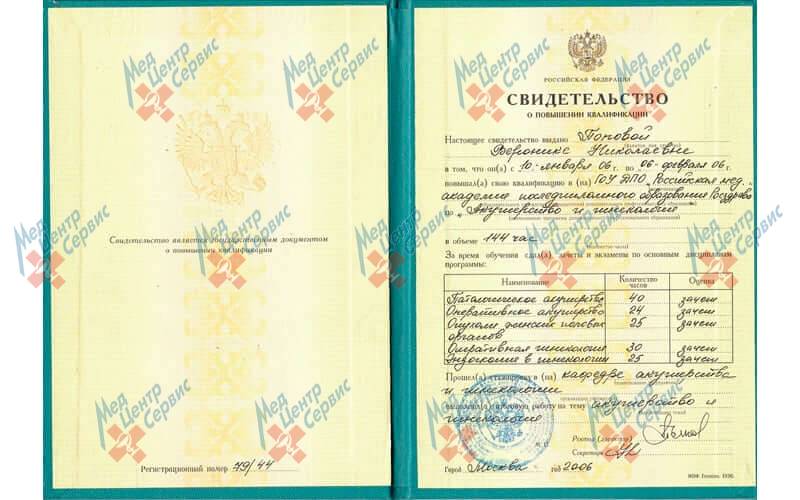 Свидетельство является государственным документом
о повышении квалификации
Регистрационный номер 79/44
РОССИЙСКАЯ ФЕДЕРАЦИЯ
СВИДЕТЕЛЬСТВО
О ПОВЫШЕНИИ КВАЛИФИКАЦИИ
Настоящее свидетельство выдано Поповой
Веронике Николаевне
в том, что он(а) с 10. января 06 г. по 06 февраля 06 г.
повышал(а) свою квалификацию в (на) ГОУ ДПО „Российская мед.
академия последипломного образования Росздрава
по „Акушерство и гинекология
в объеме 144 час
За время обучения сдал(а) зачеты и экзамены по основным дисциплинам
программы:
Наименование Количество часов Оценка
Патологическое акушерство 40 зачет
Оперативное акушерство 24 зачет
Опухоли женских половых 25 зачет
органов
Оперативная гинекология 30 зачет
Эндоскопия в гинекологии 25 зачет
Прошел(а) стажировку в (на) кафедре акушерства
и гинекологии
выполнил(а) итоговую работу на тему акушерство и
гинекология
М. П.
Ректор
Секретарь
Город Москва год 2006
Мед Центр Сервис